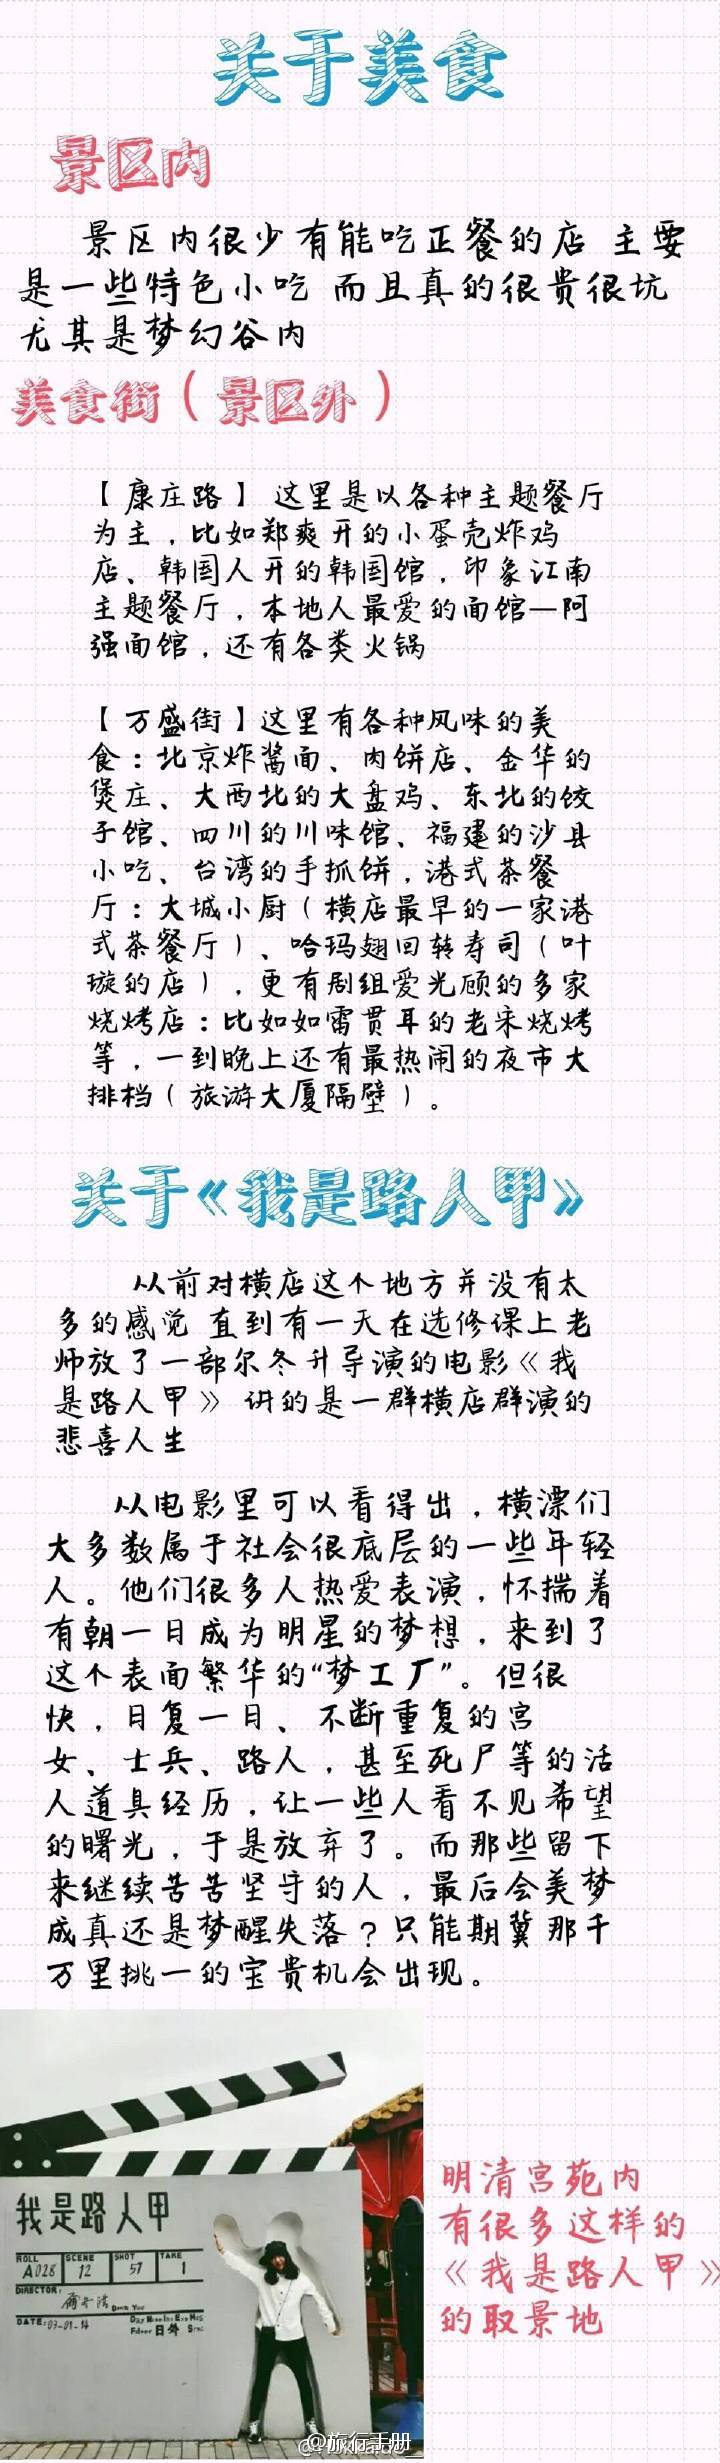 关于美食
景区内
景区内很少有能吃正餐的店 主要
是一些特色小吃 而且真的很贵很坑
尤其是梦幻谷内
美食街（景区外）
【康庄路】这里是以各种主题餐厅
为主，比如郑爽开的小蛋壳炸鸡
店、韩国人开的韩国馆，印象江南
主题餐厅，本地人最爱的面馆—阿
强面馆，还有各类火锅
【万盛街】这里有各种风味的美
食：北京炸酱面、肉饼店、金华的
煲庄、大西北的大盘鸡、东北的饺
子馆、四川的川味馆、福建的沙县
小吃、台湾的手抓饼，港式茶餐
厅：大城小厨（横店最早的一家港
式茶餐厅）、哈玛翅回转寿司（叶
璇的店），更有剧组爱光顾的多家
烧烤店：比如如雷贯耳的老宋烧烤
等，一到晚上还有最热闹的夜市大
排档（旅游大厦隔壁）。
关于《我是路人甲》
从前对横店这个地方并没有太
多的感觉 直到有一天在选修课上老
师放了一部尔冬升导演的电影《我
是路人甲》 讲的是一群横店群演的
悲喜人生
从电影里可以看得出，横漂们
大多数属于社会很底层的一些年轻
人。他们很多人热爱表演，怀揣着
有朝一日成为明星的梦想，来到了
这个表面繁华的“梦工厂”。但很
快，日复一日、不断重复的宫
女、士兵、路人，甚至死尸等的活
人道具经历，让一些人看不见希望
的曙光，于是放弃了。而那些留下
来继续苦苦坚守的人，最后会美梦
成真还是梦醒失落？只能期冀那千
万里挑一的宝贵机会出现。
我是路人甲
ROLL SCENE SHOT TAKE
A028 12 57 1
DIRECTOR:
DATE:03-01-14
日外
明清宫苑内
有很多这样的
《我是路人甲》
的取景地
@旅行手册